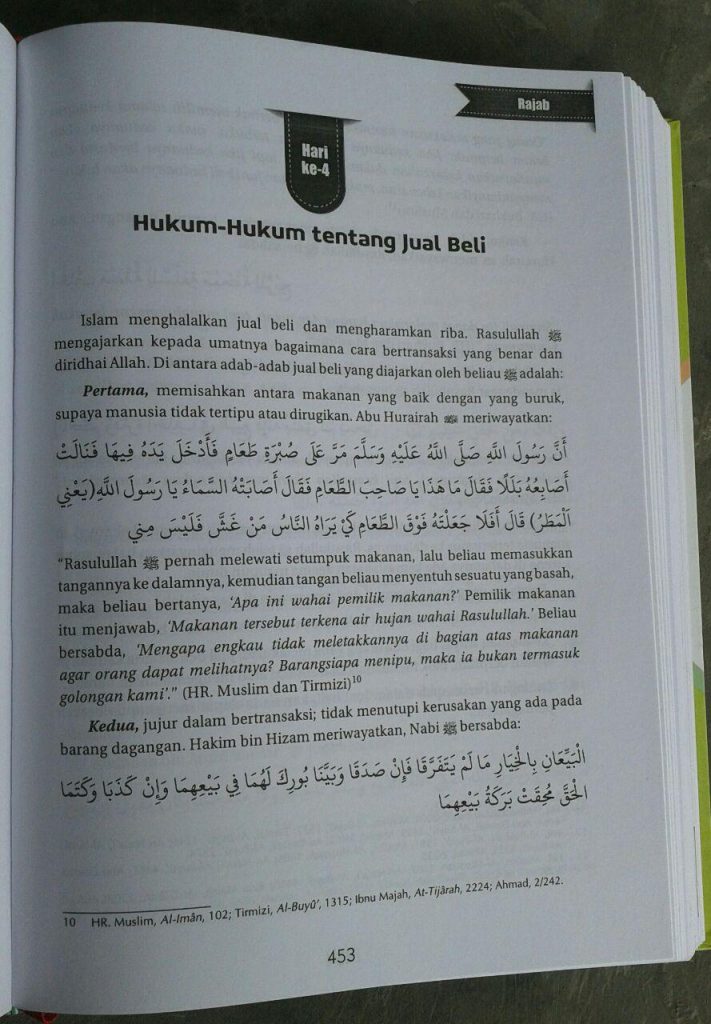 Rajab
Hari
ke-4
Hukum-Hukum tentang Jual Beli
Islam menghalalkan jual beli dan mengharamkan riba. Rasulullah ﷺ
mengajarkan kepada umatnya bagaimana cara bertransaksi yang benar dan
diridhai Allah. Di antara adab-adab jual beli yang diajarkan oleh beliau ﷺ adalah:
Pertama, memisahkan antara makanan yang baik dengan yang buruk,
supaya manusia tidak tertipu atau dirugikan. Abu Hurairah meriwayatkan:
أَنَّ رَسُولَ اللَّهِ صَلَّى اللَّهُ عَلَيْهِ وَسَلَّمَ مَرَّ عَلَى صُبْرَةِ طَعَامٍ فَأَدْخَلَ يَدَهُ فِيهَا فَنَالَتْ
أَصَابِعُهُ بَلَلًا فَقَالَ مَا هَذَا يَا صَاحِبَ الطَّعَامِ فَقَالَ أَصَابَتْهُ السَّمَاءُ يَا رَسُولَ اللَّهِ(يَعْنِي
اَلْمَطَرُ) قَالَ أَفَلَا جَعَلْتَهُ فَوْقَ الطَّعَامِ كَيْ يَرَاهُ النَّاسُ مَنْ غَشَّ فَلَيْسَ مِنِي
“Rasulullah ﷺ pernah melewati setumpuk makanan, lalu beliau memasukkan
tangannya ke dalamnya, kemudian tangan beliau menyentuh sesuatu yang basah,
maka beliau bertanya, ‘Apa ini wahai pemilik makanan?’ Pemilik makanan
itu menjawab, ‘Makanan tersebut terkena air hujan wahai Rasulullah.’ Beliau
bersabda, ‘Mengapa engkau tidak meletakkannya di bagian atas makanan
agar orang dapat melihatnya? Barangsiapa menipu, maka ia bukan termasuk
golongan kami’.” (HR. Muslim dan Tirmizi)10
Kedua, jujur dalam bertransaksi; tidak menutupi kerusakan yang ada pada
barang dagangan. Hakim bin Hizam meriwayatkan, Nabi ﷺ bersabda:
الْبَيِّعَانِ بِالْخِيَارِ مَا لَمْ يَتَفَرَّقَا فَإِنْ صَدَقَا وَبَيَّنَا بُورِكَ لَهُمَا فِي بَيْعِهِمَا وَإِنْ كَذَبَا وَكَتَمَا
الْحَقَّ مُحِقَتْ بَرَكَةُ بَيْعِهِمَا
10 HR. Muslim, Al-Imân, 102; Tirmizi, Al-Buyû’, 1315; Ibnu Majah, At-Tijârah, 2224; Ahmad, 2/242.
453